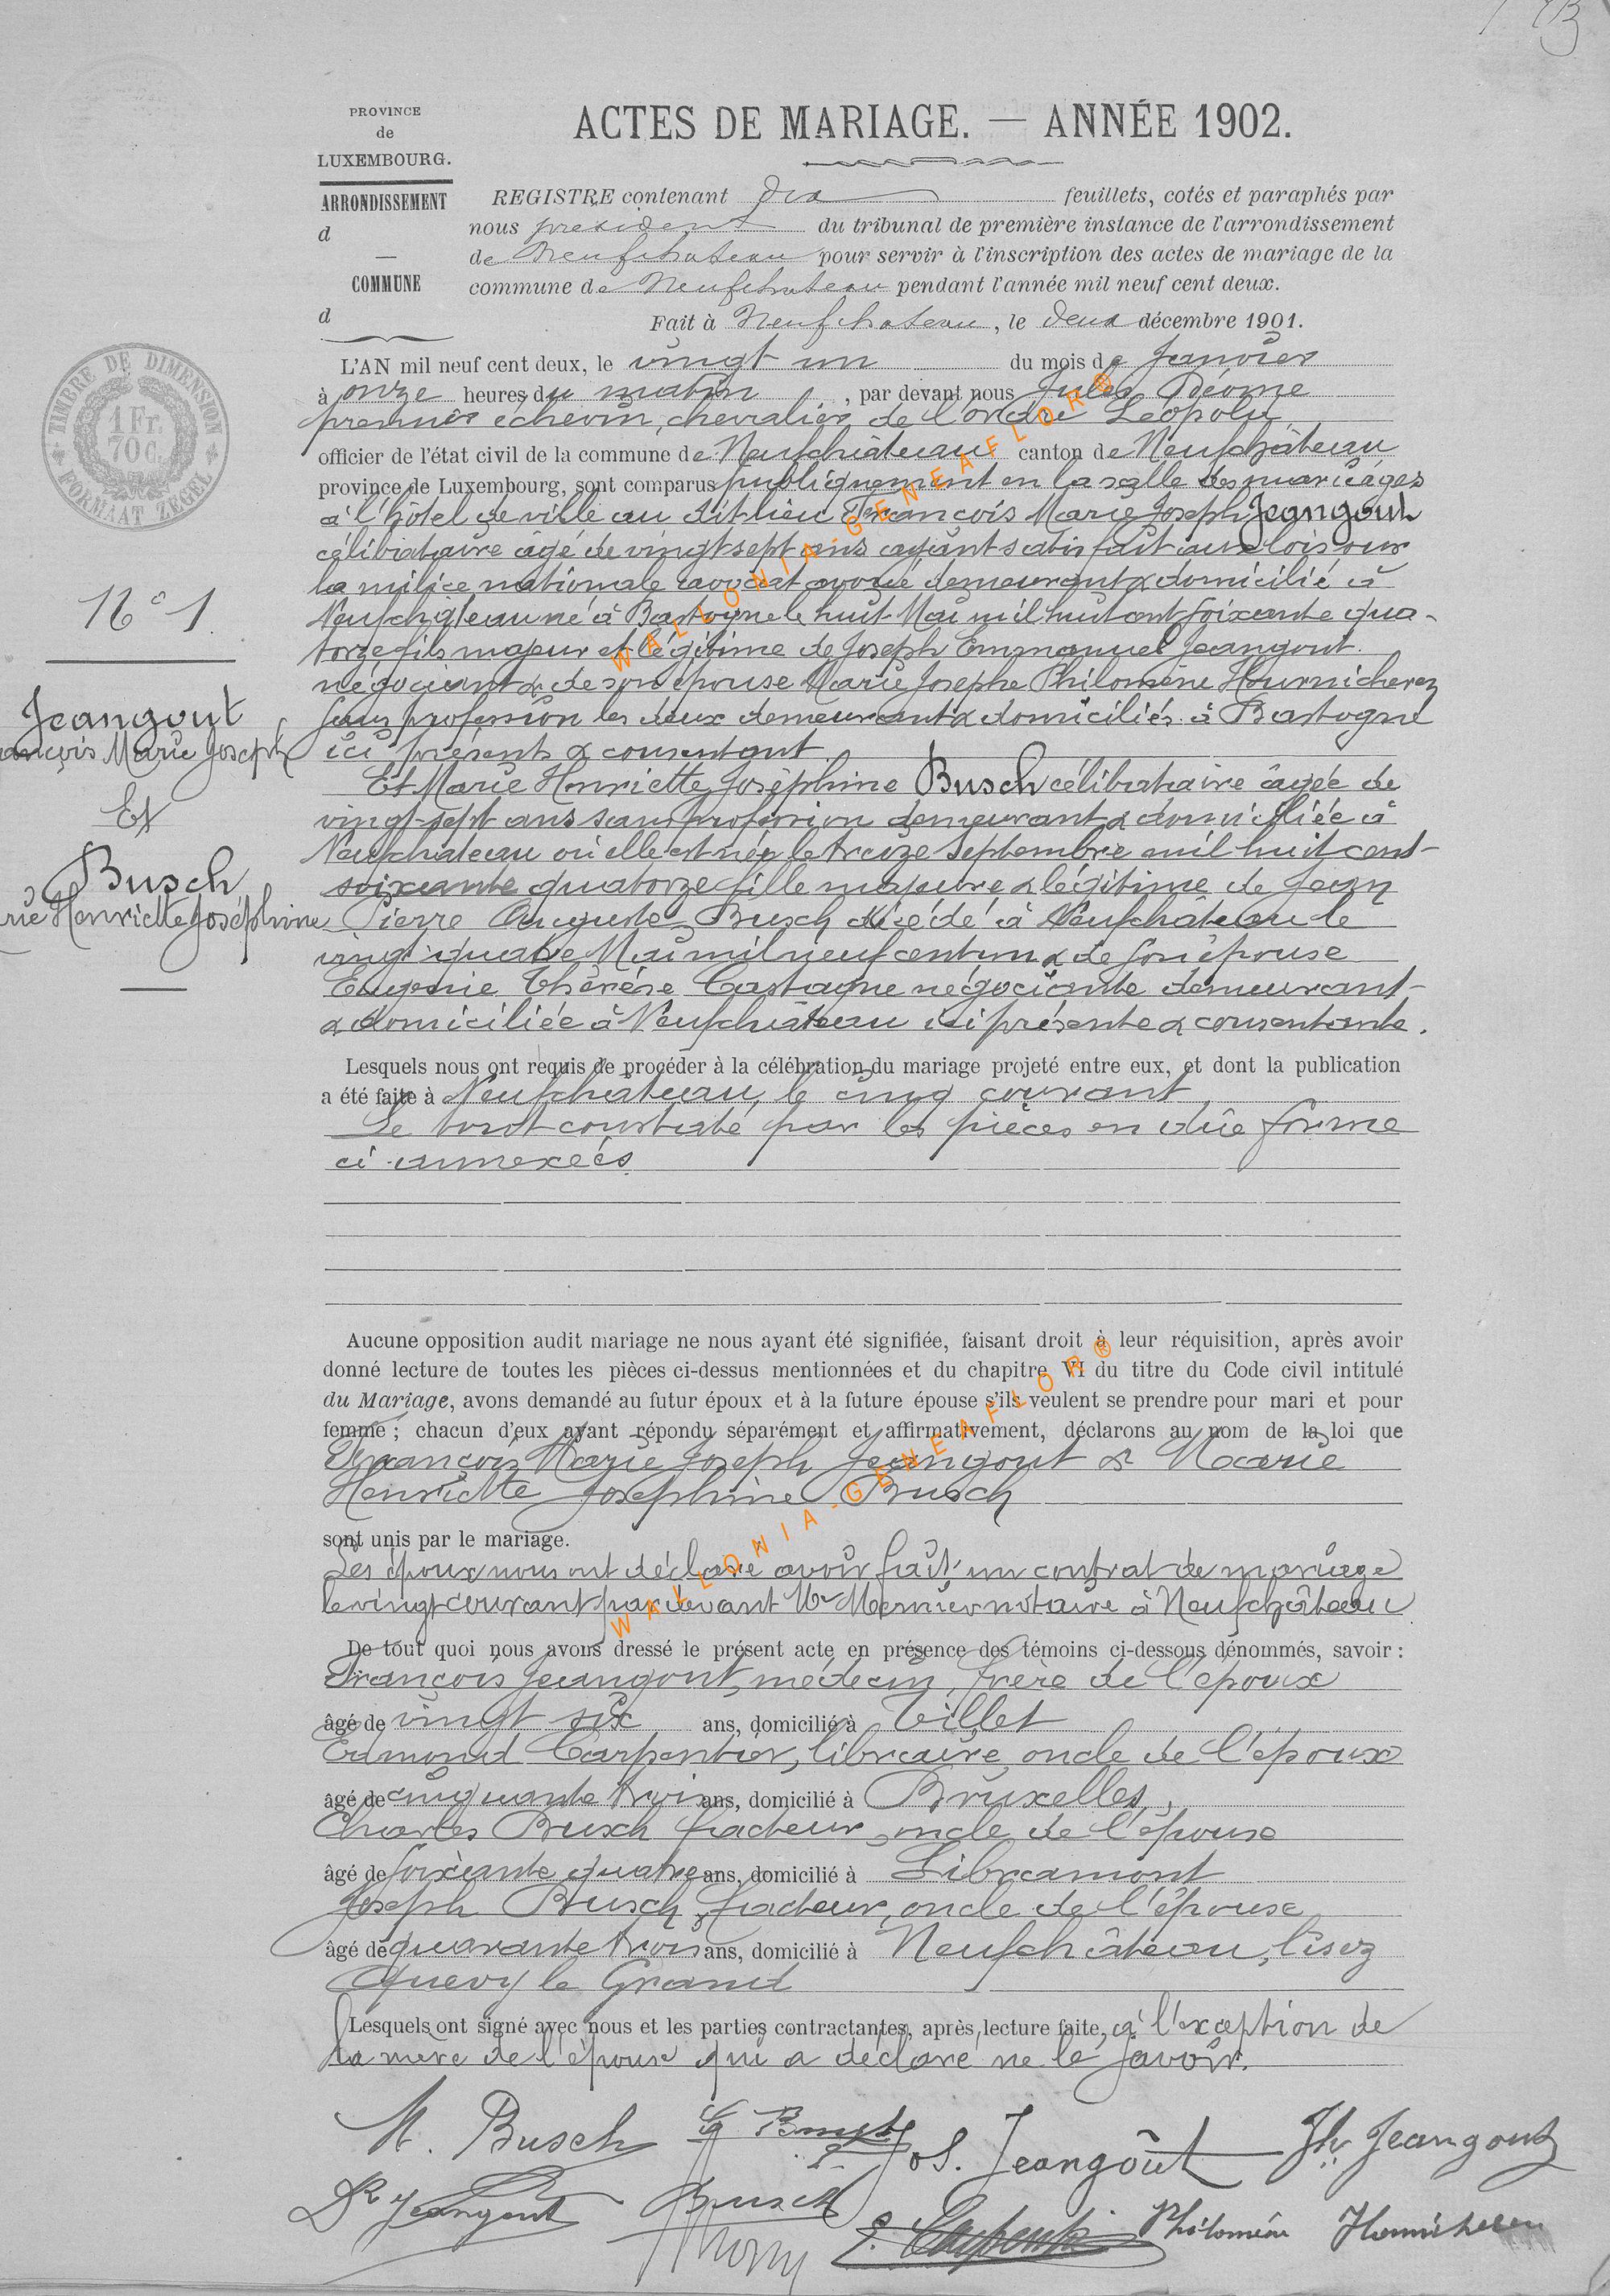 PROVINCE
de
LUXEMBOURG.
ARRONDISSEMENT
d
COMMUNE
d
ACTES DE MARIAGE. — ANNÉE 1902.
REGISTRE contenant dix feuillets, cotés et paraphés par
nous président du tribunal de première instance de l'arrondissement
de Neufchateau pour servir à l'inscription des actes de mariage de la
commune de Neufchateau pendant l'année mil neuf cent deux.
Fait à Neufchateau, le deux décembre 1901.
TIMBRE DE DIMENSION
1 Fr.
70 c.
FORMAAT ZEGEL
L'AN mil neuf cent deux, le vingt un du mois de Janvier
à onze heures du matin, par devant nous Jules Déome
premier échevin, chevalier de l'ordre Léopold
officier de l'état civil de la commune de Neufchâteau canton de Neufchâteau
province de Luxembourg, sont comparus publiquement en la salle des mariages
à l'hôtel de ville au dit lieu François Marie Joseph Jeangout
célibataire âgé de vingt sept ans ayant satisfait aux lois sur
la milice nationale avocat avoué demeurant & domicilié à
Neufchâteau né à Bastogne le huit Mai mil huit cent soixante qua-
torze fils majeur et légitime de Joseph Emmanuel Jeangout
négociant & de son épouse Marie Josephe Philomène
sans profession les deux demeurant & domiciliés à Bastogne
ici présents & consentant
Et Marie Henriette Joséphine Busch célibataire âgée de
vingt-sept ans sans profession demeurant & domiciliée à
Neufchâteau où elle est née le treize Septembre mil huit cent
soixante quatorze fille majeure & légitime de Jean
Pierre Auguste Busch décédé à Neufchâteau le
vingt quatre Mai mil neuf cent un & de son épouse
Eugenie Thérèse Castagne négociante demeurant
& domiciliée à Neufchâteau ici présente & consentante.
N° 1
Jeangout
ançois Marie Joseph
Et
Busch
rie Henriette Joséphine
Lesquels nous ont requis de procéder à la célébration du mariage projeté entre eux, et dont la publication
a été faite à Neufchâteau, le cinq courant
Le tout constaté par les pièces en dûe forme
ci annexées
Aucune opposition audit mariage ne nous ayant été signifiée, faisant droit à leur réquisition, après avoir
donné lecture de toutes les pièces ci-dessus mentionnées et du chapitre VI du titre du Code civil intitulé
du Mariage, avons demandé au futur époux et à la future épouse s'ils veulent se prendre pour mari et pour
femme ; chacun d'eux ayant répondu séparément et affirmativement, déclarons au nom de la loi que
François Marie Joseph Jeangout & Marie
Henriette Josephine Busch
sont unis par le mariage.
Les époux nous ont déclaré avoir fait un contrat de mariage
le vingt courant par devant Me notaire à Neufchâteau
De tout quoi nous avons dressé le présent acte en présence des témoins ci-dessous dénommés, savoir :
François Jeangout, médecin, frère de l'époux
âgé de vingt six ans, domicilié à Tillet
Edmond Carpentier, libraire, oncle de l'époux
âgé de cinquante trois ans, domicilié à Bruxelles,
Charles Busch facteur, oncle de l'épouse
âgé de soixante quatre ans, domicilié à Libramont
Joseph Busch, facteur, oncle de l'épouse
âgé de quarante trois ans, domicilié à Neufchâteau, lisez
Quevy le Grand
Lesquels ont signé avec nous et les parties contractantes, après lecture faite, à l'exception de
la mère de l'épouse qui a déclaré ne le savoir.
M. Busch Jos. Jeangoût Jh Jeangout
Dr Jeangout Busch E. Carpentier Philomène
WALLONIA-GENEAFLOR®
WALLONIA-GENEAFLOR®